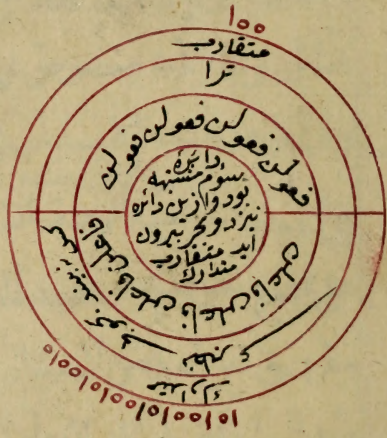 ١٥٥
متقارب
ترا
فعولن فعولن فعولن فعولن
دائره
سوم مشتبه
بود و ازین دائره
نیز دو بحر بیرون
آید متقارب
متدارک
فاعلن فاعلن فاعلن فاعلن
متدارک